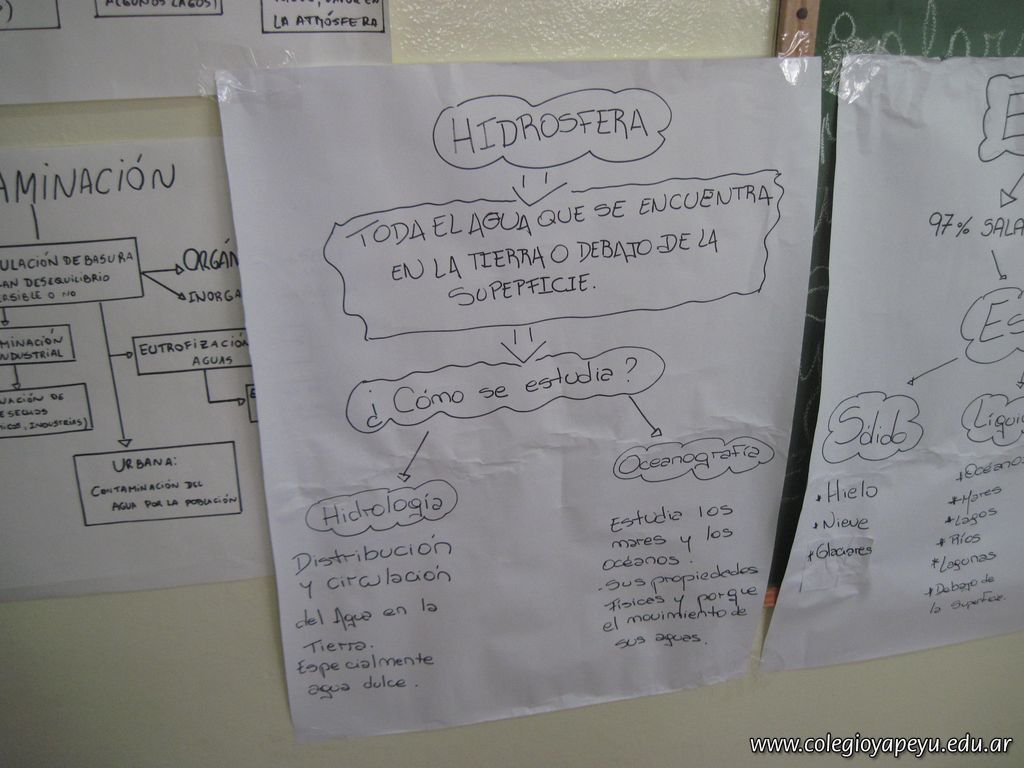 ALGUNOS LAGOS)
LA ATMÓSFERA
AMINACIÓN
ULACIÓN DE BASURA
AN DESEQUILIBRIO
ERSIBLE O NO
ORGÁN
INORGA
MINACIÓN
NDUSTRIAL
EUTROFIZACIÓN
AGUAS
NACIÓN DE
ESECHOS
MICOS, INDUSTRIAS)
URBANA:
CONTAMINACIÓN DEL
AGUA POR LA POBLACIÓN
HIDROSFERA
TODA EL AGUA QUE SE ENCUENTRA
EN LA TIERRA O DEBAJO DE LA
SUPEPFICIE.
¿Cómo se estudia?
Hidrología
Distribución
y circulación
del Agua en la
Tierra.
Especialmente
agua dulce.
Oceanografía
Estudia los
mares y los
océanos.
Sus propiedades
físices y porque
el movimiento de
sus aguas.
97% SALA
Es
Sólido
* Hielo
* Nieve
* Glaciares
Líqui
* Océano
* Mares
* Lagos
* Ríos
* Lagunas
* Debajo de
la superficie.
www.colegioyapeyu.edu.ar